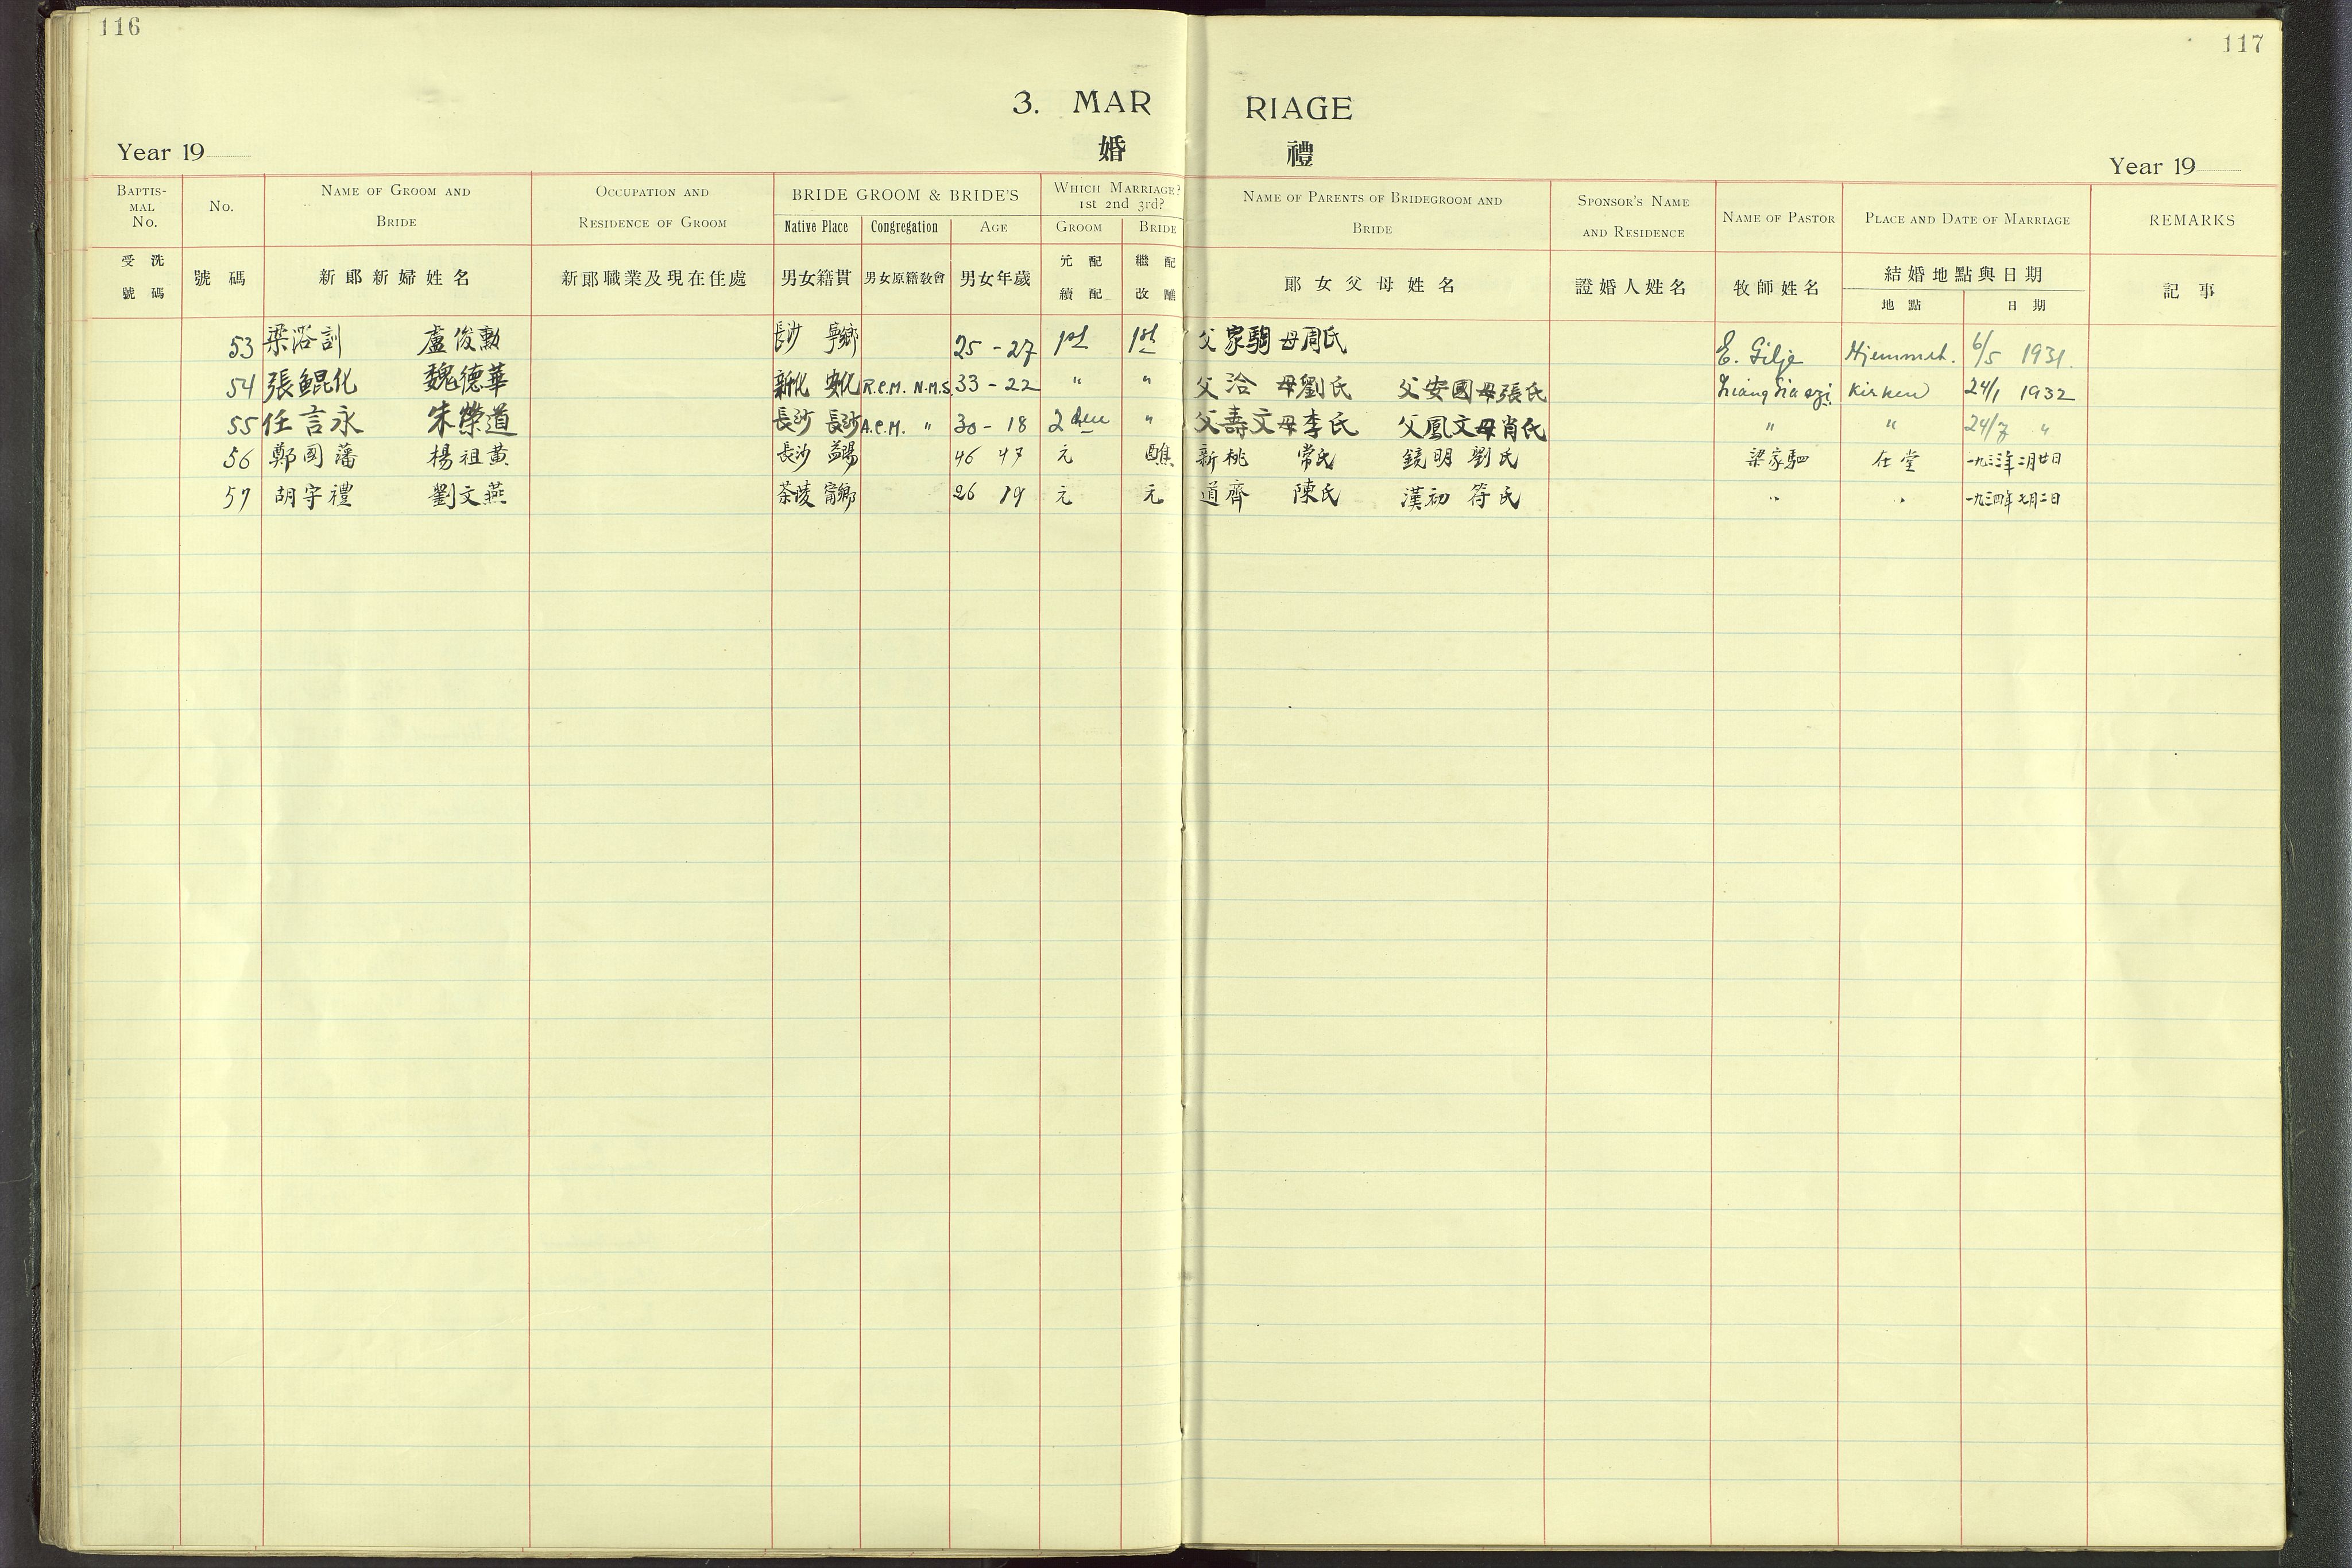 116
117
3. MAR RIAGE
婚 禮
Year 19
Year 19
BAPTISMAL No. No. NAME OF GROOM AND BRIDE OCCUPATION AND RESIDENCE OF GROOM BRIDE GROOM & BRIDE'S WHICH MARRIAGE? 1st 2nd 3rd? NAME OF PARENTS OF BRIDEGROOM AND BRIDE SPONSOR'S NAME AND RESIDENCE NAME OF PASTOR PLACE AND DATE OF MARRIAGE REMARKS
Native Place Congregation AGE GROOM BRIDE
受洗號碼 號碼 新郎新婦姓名 新郎職業及現在住處 男女籍貫 男女原籍敎會 男女年歲 元配續配 繼配改醮 郎女父母姓名 證婚人姓名 牧師姓名 結婚地點與日期 記事
地點 日期
53 梁浴訓 盧俊勲 長沙 寧鄉 25 - 27 1st 1st 父家駒 母周氏 E. Gilje Hjemmet. 6/5 1931.
54 張鯤化 魏德華 新化 安化 R.C.M. N.M.S. 33 - 22 " " 父洽 母劉氏 父安國 母張氏 Liang Gia szi. Kirken 24/1 1932
55 任言永 朱榮道 長沙 長沙 A.C.M. " 30 - 18 2 " 父壽文 母李氏 父鳳文 母肖氏 " " 24/7 "
56 鄭國藩 楊祖黄 長沙 益陽 46 47 元 醮 新桃 常氏 鏡明 劉氏 梁家駟 在堂 一九三三年二月廿日
57 胡守禮 劉文燕 茶陵 甯鄉 26 19 元 元 道齊 陳氏 漢初 符氏 " " 一九三四年七月二日